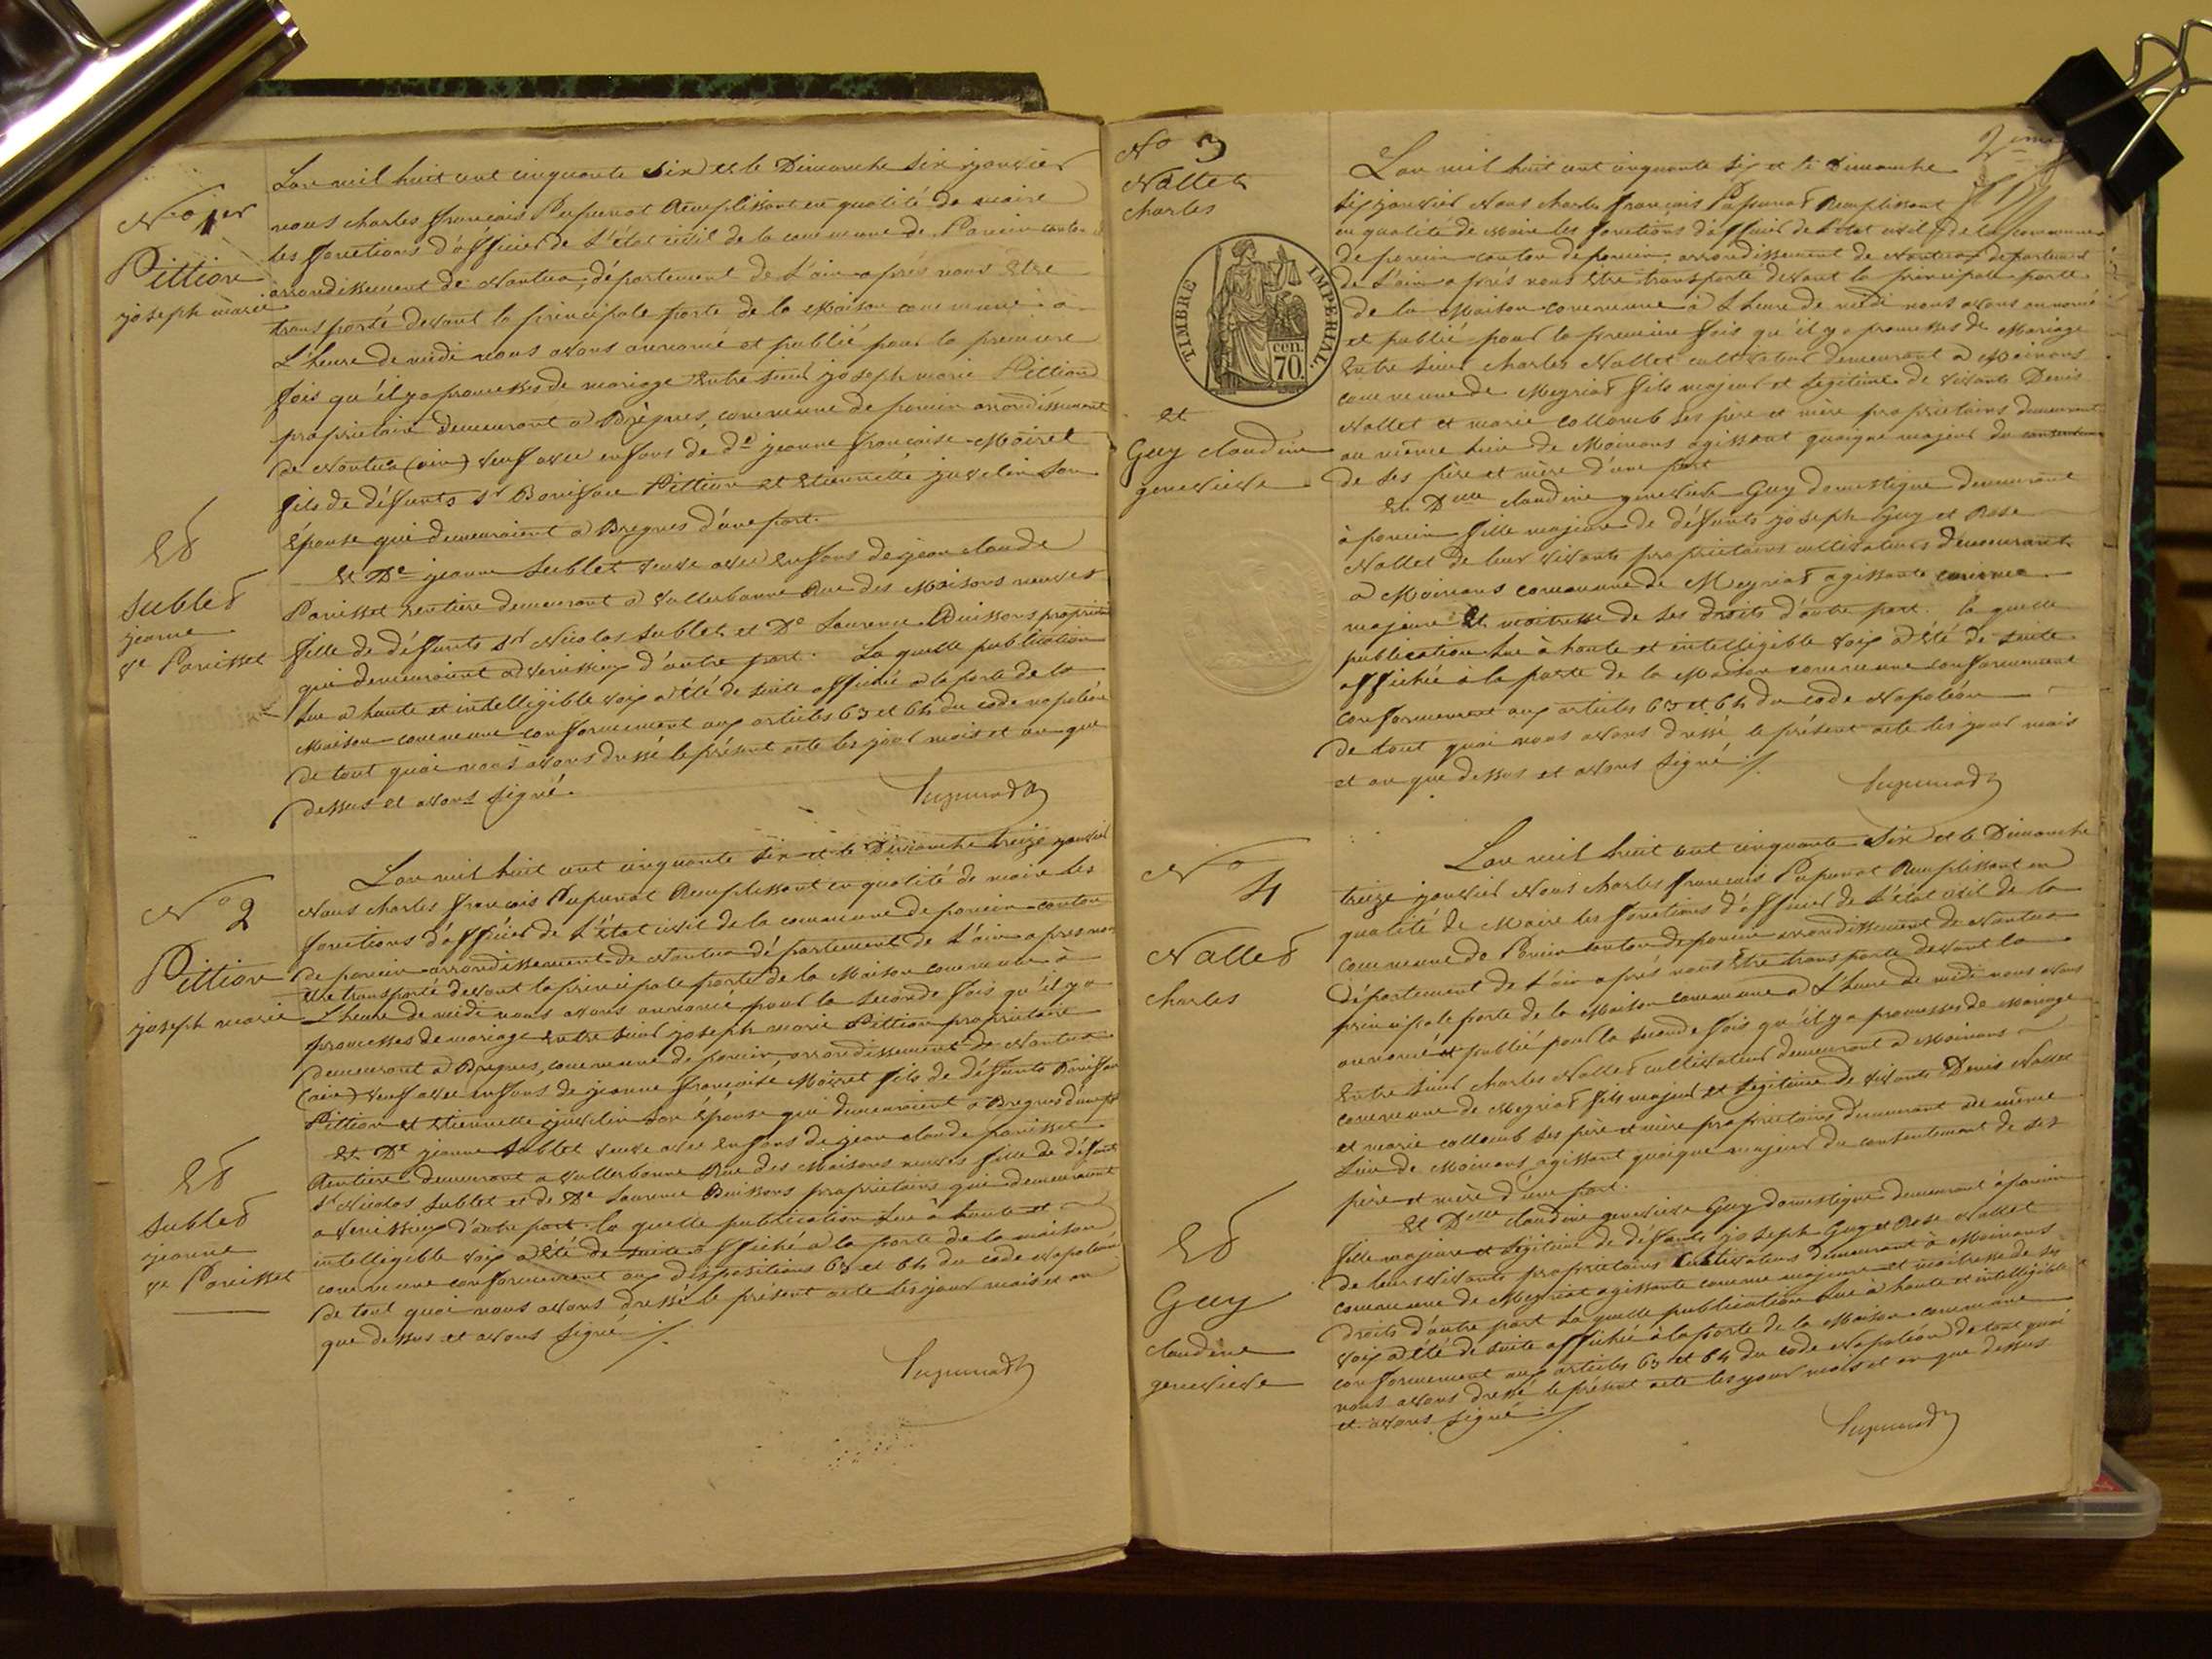 N° 1er
Pittion
joseph marie
Et
Sublet
jeanne
ve Parisset
L'an mil huit cent cinquante Six et le Dimanche six janvier
nous charles françois Pupunat Remplissant en qualité de maire
les fonctions d'officier de l'état civil de la commune de Poncin canton
arrondissement de Nantua, département de l'ain après nous Etre
transporté devant la principale porte de la Maison commune à
L'heure de midi nous avons annoncé et publié pour la premiere
fois qu'il y a promesses de mariage Entre sieur joseph marie Pittion
proprietaire demeurant a Brègnes, commune de poncin arrondissement
de Nantua (ain) veuf avec enfans de de jeanne françoise Moiret
fils de défunts sr Boniface Pittion et Etiennette juvelin son
Epouse qui demeuraient a Bregnes d'une part.
Et De jeanne Sublet veuve avec Enfans de jean claude
Parisset rentiere demeurant a Vullerbanne Rue des Maisons neuves
fille de défunts sr Nicolas Sublet et De Laurence Buissons propriet
qui demeuraient a Venissieux d'autre part. La quelle publication
lue a haute et intelligible voix a été de suite affiché a la porte de la
Maison commune conformement aux articles 63 et 64 du code napoléon
de tout quoi nous avons dressé le présent acte les jour mois et an que
dessus et avons signé.
Pupunat
N° 2
Pittion
joseph marie
Et
Sublet
jeanne
ve Parisset
L'an mil huit cent cinquante six et le Dimanche treize janvier
Nous charles françois Pupunat Remplissant en qualité de maire les
fonctions d'officier de l'état civil de la commune de poncin canton
de poncin arrondissement de Nantua département de l'ain apres nous
Etre transporté devant la principale porte de la Maison commune à
L'heure de midi nous avons annoncé pour la seconde fois qu'il y a
promesses de mariage Entre sieur joseph marie Pittion proprietaire
demeurant a Bregnes, commune de poncin, arrondissement de Nantua
(ain) veuf avec enfans de jeanne françoise Moiret fils de défunts Boniface
Pittion et Etiennette juvelin son Epouse qui demeuraient a Bregnes d'une pt
Et De jeanne Sublet veuve avec Enfans de jean claude parisset
Rentiere demeurant a Vullerbanne Rue des Maisons neuves fille de défunts
sr Nicolas Sublet et de De Laurence Buissons proprietaires qui demeuraient
a Venissieux d'autre part. la quelle publication lue à haute et
intelligible voix a été de suite affiché a la porte de la maison
commune conformement aux dispositions 63 et 64 du code Napoléon
de tout quoi nous avons dressé le présent acte les jour mois et an
que dessus et avons signé
Pupunat
2eme
N° 3
Nallet
charles
TIMBRE IMPERIAL.
70 cen.
et
Guy claudine
genevieve
L'an mil huit cent cinquante six et le Dimanche
six janvier Nous charles françois Pupunat Remplissant
en qualité de Maire les fonctions d'officier de l'état civil de la commune
de poncin canton de poncin arrondissement de Nantua departement
de l'ain après nous Etre transporté devant la principale porte
de la Maison commune à L'heure de midi nous avons annoncé
et publié pour la premiere fois qu'il y a promesses de Mariage
Entre sieur charles Nallet cultivateur demeurant a Moinans
commune de Meyriat fils majeur et legitime de vivants Denis
Nallet et marie collomb ses père et mère proprietaires demeurant
au même lieu de Moinans agissant quoique majeur du consentement
de ses père et mère d'une part
Et Dlle claudine genevieve Guy domestique demeurant
à poncin fille majeure de défunts joseph Guy et Rose
Nallet de leur vivants proprietaires cultivateurs demeurant
a Moinans commune de Meyriat agissante comme
majeure Et maitresse de ses droits d'autre part. la quelle
publication lue à haute et intelligible voix a été de suite
affichée à la porte de la Maison commune conformement
conformement aux articles 63 et 64 du code Napoléon
de tout quoi nous avons dressé le présent acte les jour mois
et an que dessus et avons signé
Pupunat
N° 4
Nallet
charles
Et
Guy
claudine
genevieve
L'an mil huit cent cinquante Six et le Dimanche
treize janvier Nous charles francois Pupunat Remplissant en
qualité de Maire les fonctions d'officier de l'état civil de la
commune de Poncin canton de poncin arrondissement de Nantua
département de l'ain après nous Etre transporté devant la
principale porte de la Maison commune a L'heure de midi nous avons
annoncé et publié pour la seconde fois qu'il y a promesses de Mariage
Entre sieur charles Nallet cultivateur demeurant a Moinans
commune de Meyriat fils majeur et legitime de vivants Denis Nallet
et marie collomb ses père et mère proprietaires demeurant au même
lieu de Moinans agissant quoique majeur du consentement de ses
père et mère d'une part.
Et Delle claudine genevieve Guy domestique demeurant à poncin
fille majeure et légitime de défunts joseph Guy et Rose Nallet
de leurs vivants proprietaires cultivateurs demeurant à Moinans
commune de Meyriat agissante comme majeure et maitresse de ses
droits d'autre part La quelle publication lue à haute et intelligible
voix a été de suite affiché à la porte de la Maison commune
conformement aux articles 63 et 64 du code Napoléon de tout quoi
nous avons dressé le présent acte les jour mois et an que dessus
et avons signé
Pupunat